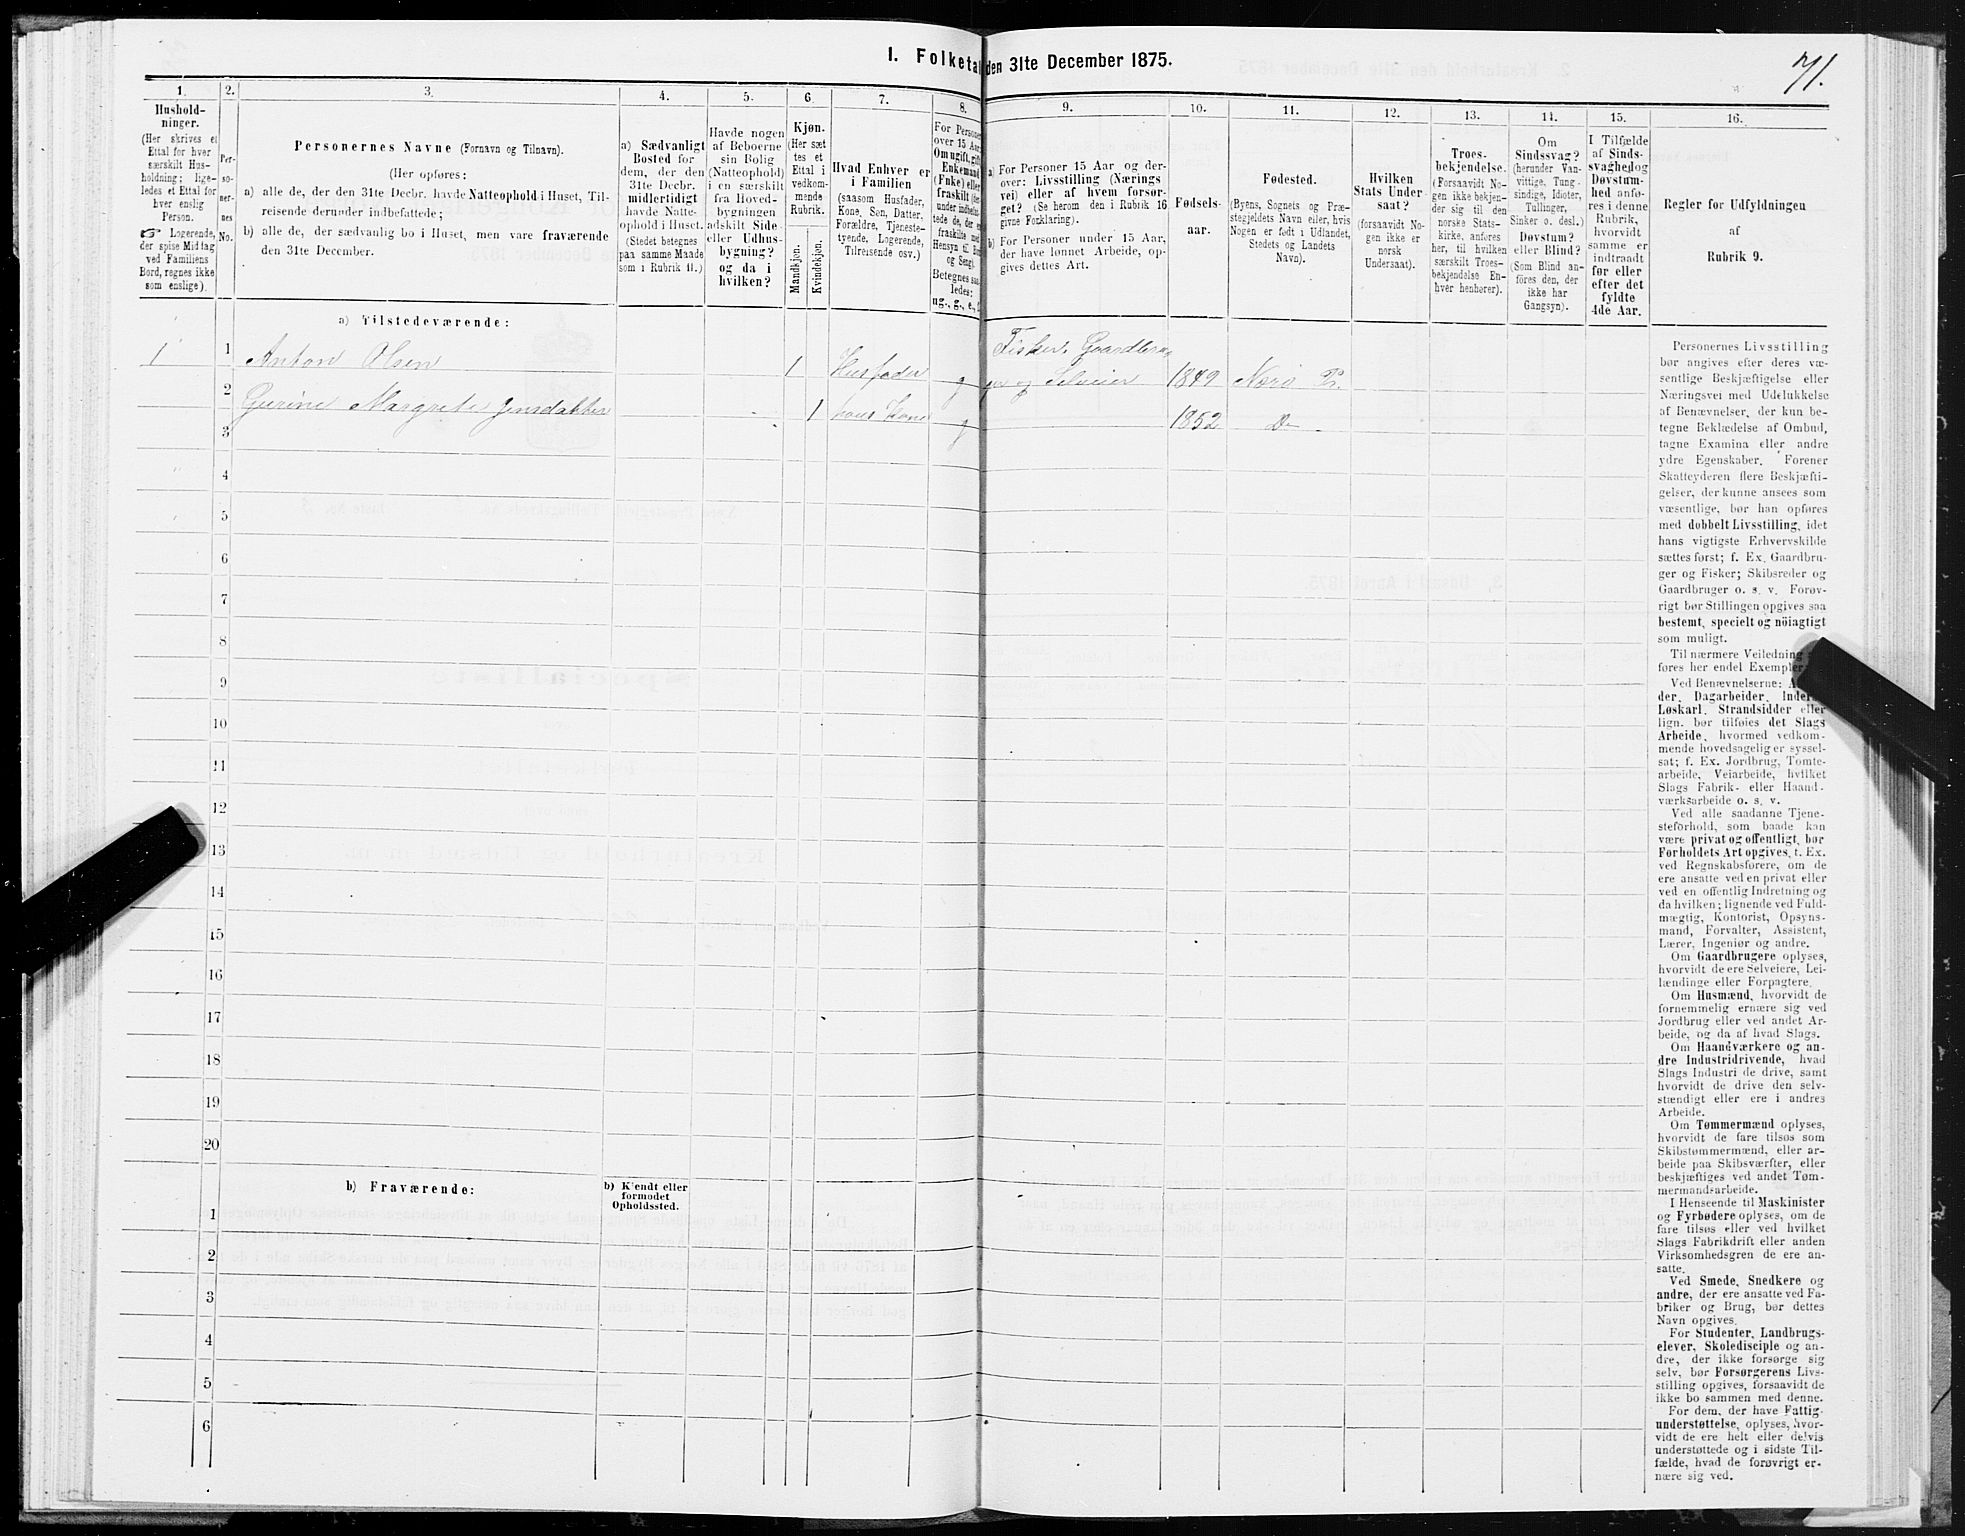 I. Folketal den 31te December 1875.
71.
1.
Hushold-
ninger.
(Her skrives et
Ettal for hver
særskilt Hus-
holdning; lige-
ledes et Ettal for
hver enslig
Person.
☞ Logerende,
der spise Middag
ved Familiens
Bord, regnes ikke
som enslige).
2.
Per-
so-
ner-
nes
No.
3.
Personernes Navne (Fornavn og Tilnavn).
(Her opføres:
a) alle de, der den 31te Decbr. havde Natteophold i Huset, Til-
reisende derunder indbefattede;
b) alle de, der sædvanlig bo i Huset, men vare fraværende
den 31te December.
4.
a) Sædvanligt
Bosted for
dem, der den
31te Decbr.
midlertidigt
havde Natte-
ophold i Huset.
(Stedet betegnes
paa samme Maade
som i Rubrik 11.)
5.
Havde nogen
af Beboerne
sin Bolig
(Natteophold)
i en særskilt
fra Hoved-
bygningen
adskilt Side-
eller Udhus-
bygning?
og da i
hvilken?
6.
Kjøn.
(Her sæt
tes et
Ettal i
vedkom-
mende
Rubrik.
Mandkjøn.
Kvindekjøn.
7.
Hvad Enhver er
i Familien
(saasom Husfader,
Kone, Søn, Datter,
Forældre, Tjeneste-
tyende, Logerende,
Tilreisende osv.)
8.
For Personer
over 15 Aar:
Om ugift, gift,
Enkemand
(Enke) eller
fraskilt
Betegnes saa-
ledes:
ug., g., e., f.
9.
a) For Personer 15 Aar og der-
over: Livsstilling (Nærings
vei) eller af hvem forsør-
get? (Se herom den i Rubrik 16
givne Forklaring).
b) For Personer under 15 Aar,
der have lønnet Arbeide, op-
gives dettes Art.
10.
Fødsels-
aar.
11.
Fødested.
(Byens, Sognets og Præ-
stegjeldets Navn eller, hvis
Nogen er født i Udlandet,
Stedets og Landets
Navn).
12.
Hvilken
Stats Under-
saat?
(forsaavidt No-
gen ikke er
norsk
Undersaat).
13.
Troes-
bekjendelse.
(Forsaavidt No-
gen ikke bekjen-
der sig til den
norske Stats-
kirke, anføres
her, til hvilken
særskilt Troes-
bekjendelse En-
hver henhører).
14.
Om
Sindssvag?
(herunder Van-
vittige, Tung-
sindige, Idioter,
Tullinger,
Sinker o. desl.)
Døvstum?
eller Blind?
(Som Blind an-
føres den, der
ikke har
Gangsyn).
15.
I Tilfælde
af Sinds-
svaghed og
Døvstum-
hed anfø-
res i denne
Rubrik,
hvorvidt
samme er
indtraadt
før eller
efter det
fyldte
4de Aar.
16.
Regler for Udfyldningen
af
Rubrik 9.
a) Tilstedeværende:
1 1 Anton Olsen 1 Husfader g Fisker, Gaardbru-
ger og Selveier 1849 Nærø Pr.
2 Gurine Margrete Jensdatter 1 hans Kone g 1852 Do
3
4
5
6
7
8
9
10
11
12
13
14
15
16
17
18
19
20
b) Fraværende:
b) Kjendt eller
formodet
Opholdssted.
1
2
3
4
5
6
Personernes Livsstilling
bør angives efter deres væ-
sentlige Beskjæftigelse eller
Næringsvei med Udelukkelse
af Benævnelser, der kun be-
tegne Beklædelse af Ombud,
tagne Examina eller andre
ydre Egenskaber. Forener
Skatteyderen flere Beskjæfti-
gelser, der kunne ansees som
væsentlige, bør han opføres
med dobbelt Livsstilling, idet
hans vigtigste Erhvervskilde
sættes først; f. Ex. Gaardbru-
ger og Fisker; Skibsreder og
Gaardbruger o. s. v. Forøv-
rigt bør Stillingen opgives saa
bestemt, specielt og nöiagtigt
som muligt.
Til nærmere Veiledning
føres her endel Exempler
Ved Benævnelserne:
der, Dagarbeider, Inder
Løskarl, Strandsidder eller
lign. bør tilføies det Slags
Arbeide, hvormed vedkom-
mende hovedsagelig er syssel-
sat; f. Ex. Jordbrug, Tømte-
arbeide, Veiarbeide, hvilket
Slags Fabrik- eller Haand-
værksarbeide o. s. v.
Ved alle saadanne Tjene-
steforhold, som baade kan
være privat og offentligt, bør
Forholdets Art opgives, t. Ex.
ved Regnskabsførere, om de
ere ansatte ved en privat eller
ved en offentlig Indretning og
da hvilken; lignende ved Fuld-
mægtig, Kontorist, Opsyns-
mand, Forvalter, Assistent,
Lærer, Ingeniør og andre.
Om Gaardbrugere oplyses,
hvorvidt de ere Selveiere, Lei-
lændinge eller Forpagtere.
Om Husmænd, hvorvidt de
fornemmelig ernære sig ved
Jordbrug eller ved andet Ar-
beide, og da af hvad Slags.
Om Haandværkere og an-
dre Industridrivende, hvad
Slags Industri de drive, samt
hvorvidt de drive den selv-
stændigt eller ere i andres
Arbeide.
Om Tømmermænd oplyses,
hvorvidt de fare tilsøs som
Skibstømmermænd, eller ar-
beide paa Skibsværfter, eller
beskjæftiges ved andet Tøm-
mermandsarbeide.
I Henseende til Maskinister
og Fyrbødere oplyses, om de
fare tilsøs eller ved hvilket
Slags Fabrikdrift eller anden
Virksomhedsgren de ere an-
satte.
Ved Smede, Snedkere og
andre, der ere ansatte ved Fa-
briker og Brug, bør dettes
Navn opgives.
For Studenter, Landbrugs-
elever, Skoledisciple og an-
dre, der ikke forsørge sig
selv, bør Forsørgerens Livs-
stilling opgives, forsaavidt de
ikke bo sammen med denne.
For dem, der have Fattig-
understøttelse, oplyses, hvor-
vidt de ere helt eller delvis
understøttede og i sidste Til-
fælde, hvad de forøvrigt er-
nære sig ved.